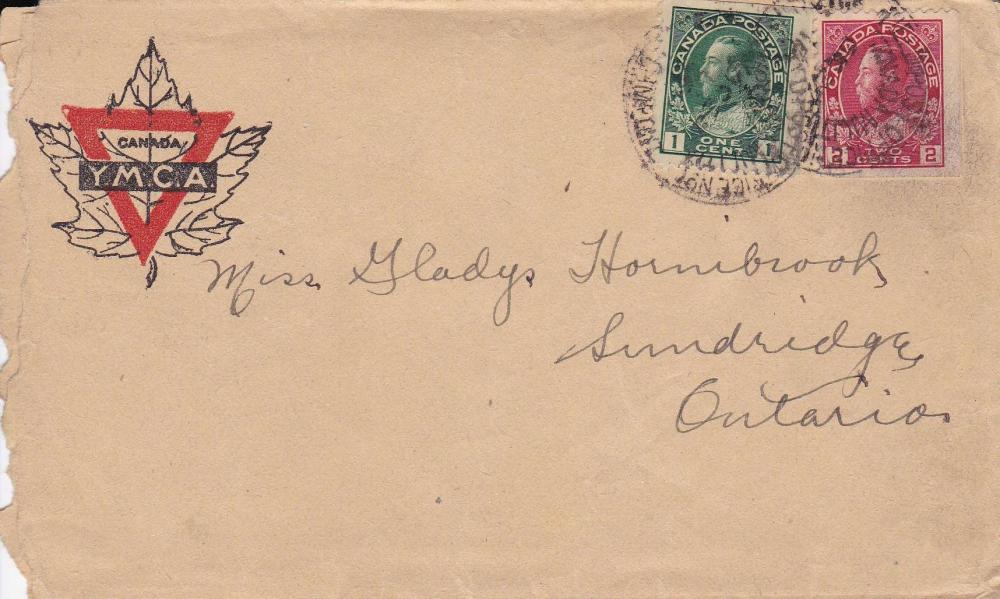 CANADA
YMCA
CANADA POSTAGE
1 ONE CENT 1
CANADA POSTAGE
2 TWO CENTS 2
Miss Gladys Hornibrook
Sundridge
Ontario